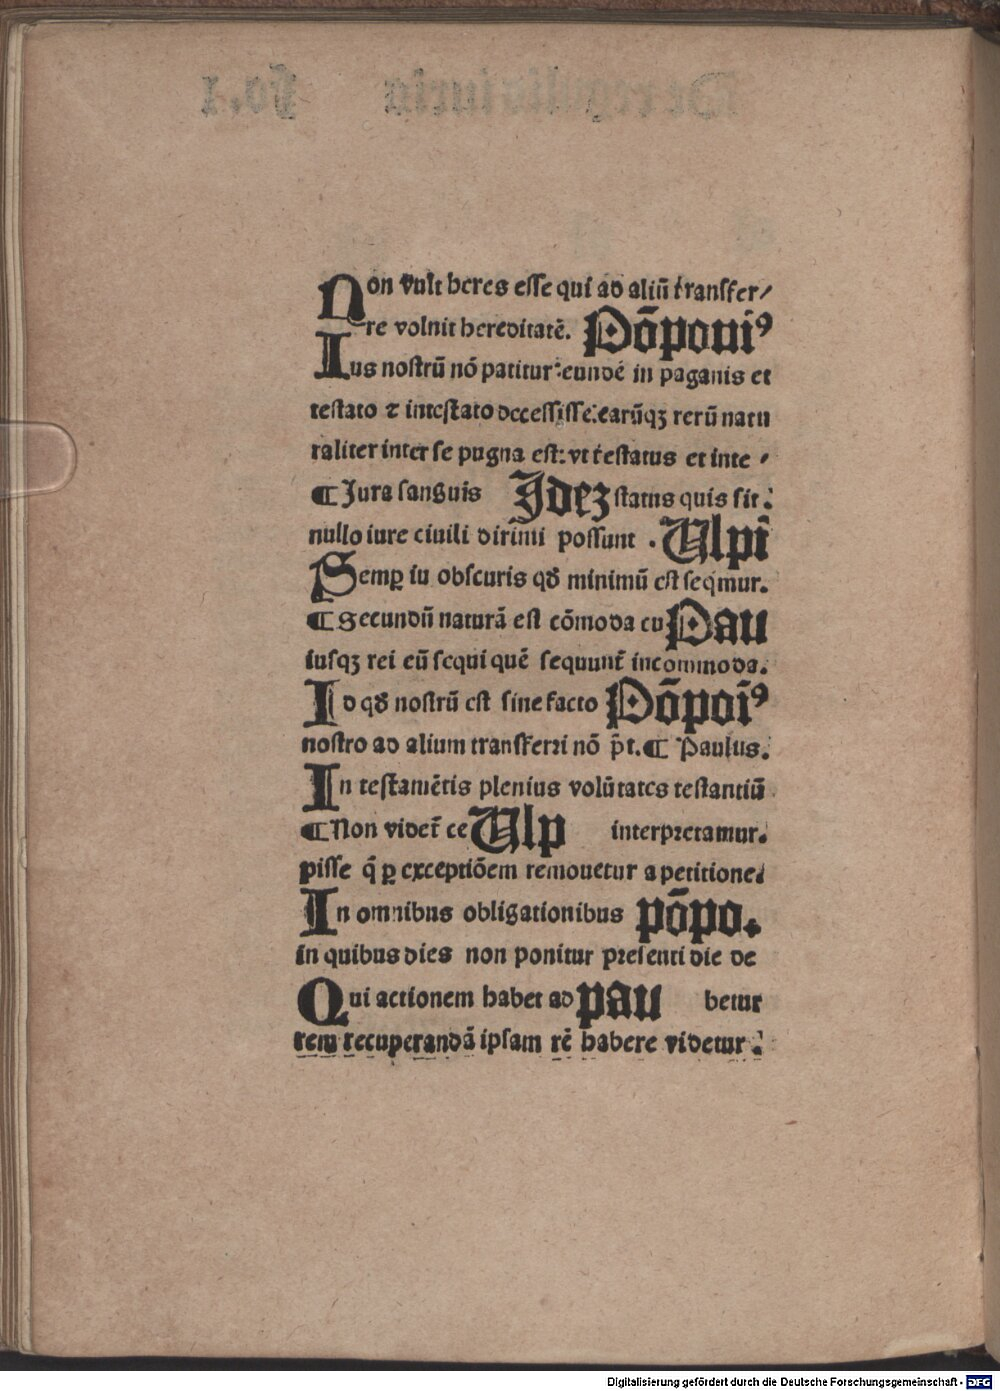 Non vult heres esse qui ad aliū transfer/
re volnit hereditatē. Pōponiꝰ
Ius nostrū nō patitur: eundē in paganis et
testato ⁊ intestato decessisse: earūqꝫ rerū natu
raliter inter se pugna est: vt testatus et inte /
¶ Jura sanguis Ideꝫ status quis sit:
nullo iure ciuili dirimi possunt . Ulpī
Semꝑ iu obscuris qd̄ minimū est seqmur.
¶ Secundū naturā est cōmoda cu Pau
iusqꝫ rei eū sequi quē sequunt̄ incommoda.
Id qd̄ nostrū est sine facto Pōpoīꝰ
nostro ad alium transferri nō p̄t. ¶ Paulus.
In testamētis plenius volūtates testantiū
¶ Non videt̄ ce Ulp interpretamur.
pisse q̄ ꝑ exceptiōem remouetur a petitione:
In omnibus obligationibus pōpo.
in quibus dies non ponitur presenti die de
Qui actionem habet ad pau betur
rem recuperandā ipsam rē habere videtur :
Digitalisierung gefördert durch die Deutsche Forschungsgemeinschaft - DFG